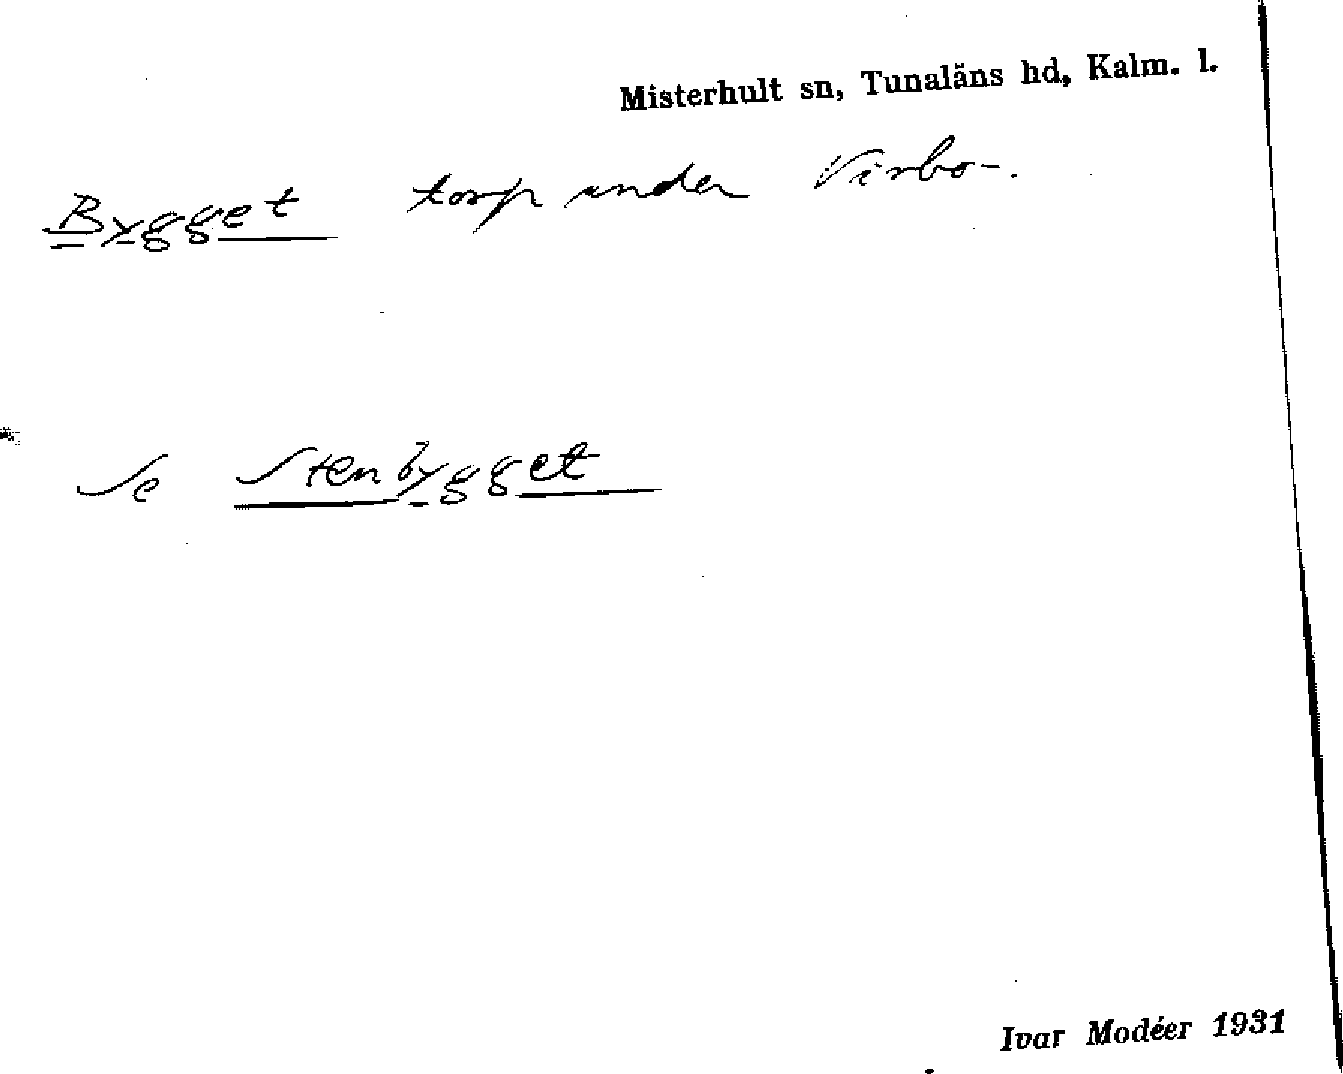 Misterhult sn, Tunaläns hd, Kalm. l.
Bygget torp under Virbo.
Se Stenbygget
Ivar Modéer 1931